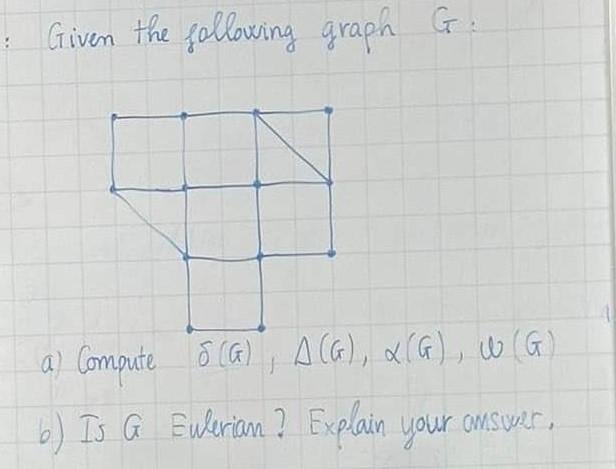 : Given the following graph G :
a) Compute δ(G), Δ(G), α(G), ω(G)
b) Is G Eulerian? Explain your answer.